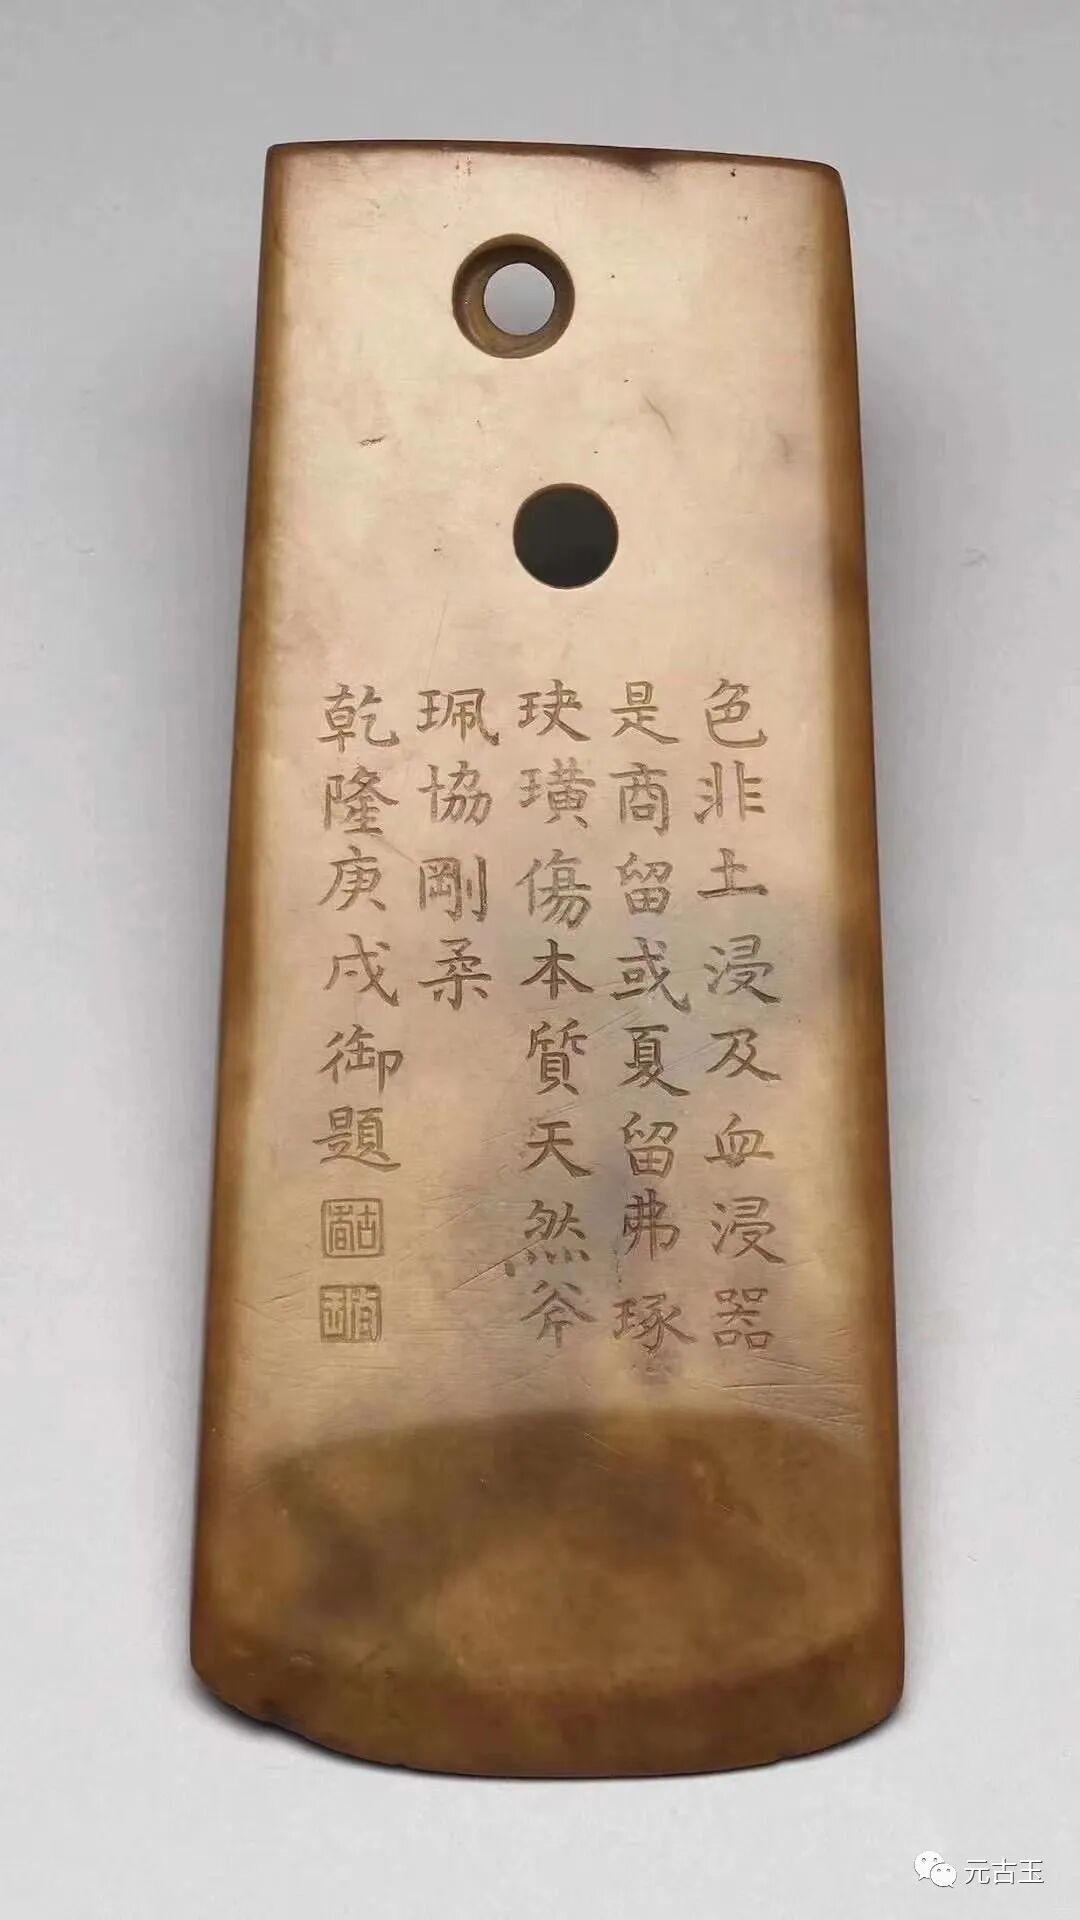 色非土浸及血浸器
是商留或夏留弗琢
玦璜傷本質天然斧
珮協剛柔
乾隆庚戌御題
元古玉